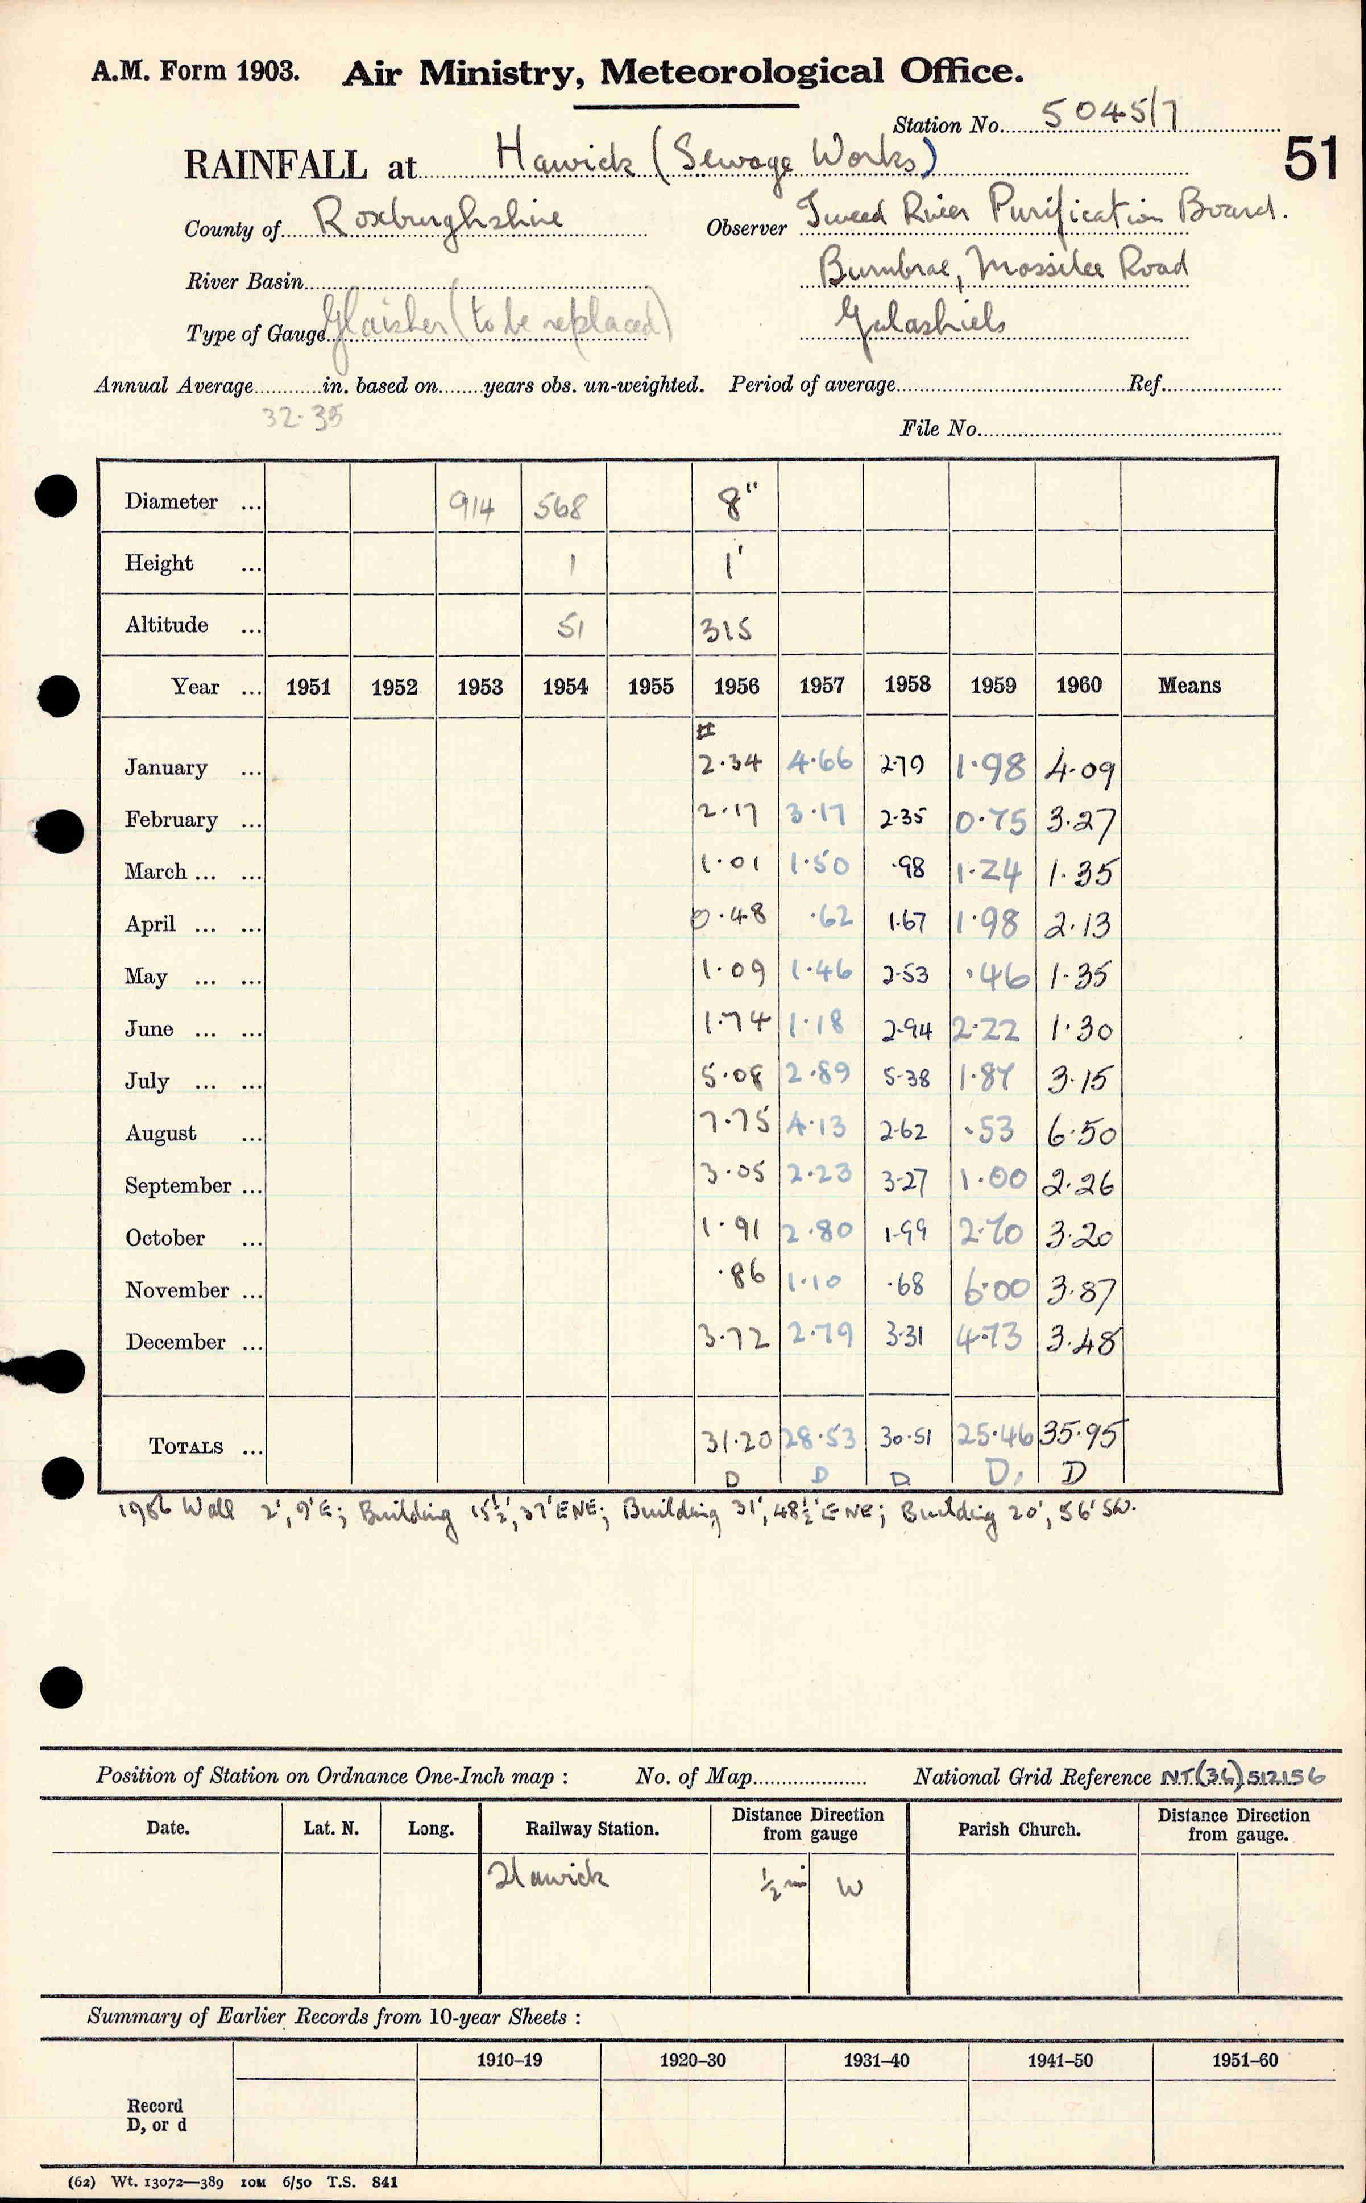 A.M. Form 1903. Air Ministry, Meteorological Office.
Station No. 5045/7
RAINFALL at Hawick (Sewage Works)
51
County of Roxburghshire Observer Tweed River Purification Board.
River Basin Burnbrae, Mossilee Road
Type of Gauge Glaisher (to be replaced) Galashiels
Annual Average in. based on years obs. un-weighted. Period of average Ref.
32.35
File No.
Diameter ... 914 568 8"
Height ... 1 1'
Altitude ... 51 315
Year ... 1951 1952 1953 1954 1955 1956 1957 1958 1959 1960 Means
#
January ... 2.34 4.66 2.79 1.98 4.09
February ... 2.17 3.17 2.35 0.75 3.27
March ... ... 1.01 1.50 .98 1.24 1.35
April ... ... 0.48 .62 1.67 1.98 2.13
May ... ... 1.09 1.46 2.53 .46 1.35
June ... ... 1.74 1.18 2.94 2.22 1.30
July ... ... 5.08 2.89 5.38 1.87 3.15
August ... 7.75 4.13 2.62 .53 6.50
September ... 3.05 2.23 3.27 1.00 2.26
October ... 1.91 2.80 1.99 2.70 3.20
November ... .86 1.10 .68 6.00 3.87
December ... 3.72 2.79 3.31 4.73 3.48
TOTALS ... 31.20 28.53 30.51 25.46 35.95
D D D D. D
1956 Wall 2', 9'E; Building 15½', 37'ENE; Building 31', 48½'ENE; Building 20', 56'SW.
Position of Station on Ordnance One-Inch map : No. of Map National Grid Reference NT(36)512156
Date. Lat. N. Long. Railway Station. Distance Direction from gauge Parish Church. Distance Direction from gauge.
Hawick ½ mi W
Summary of Earlier Records from 10-year Sheets :
1910–19 1920–30 1931–40 1941–50 1951–60
Record
D, or d
(62) Wt. 13072—389 10M 6/50 T.S. 841